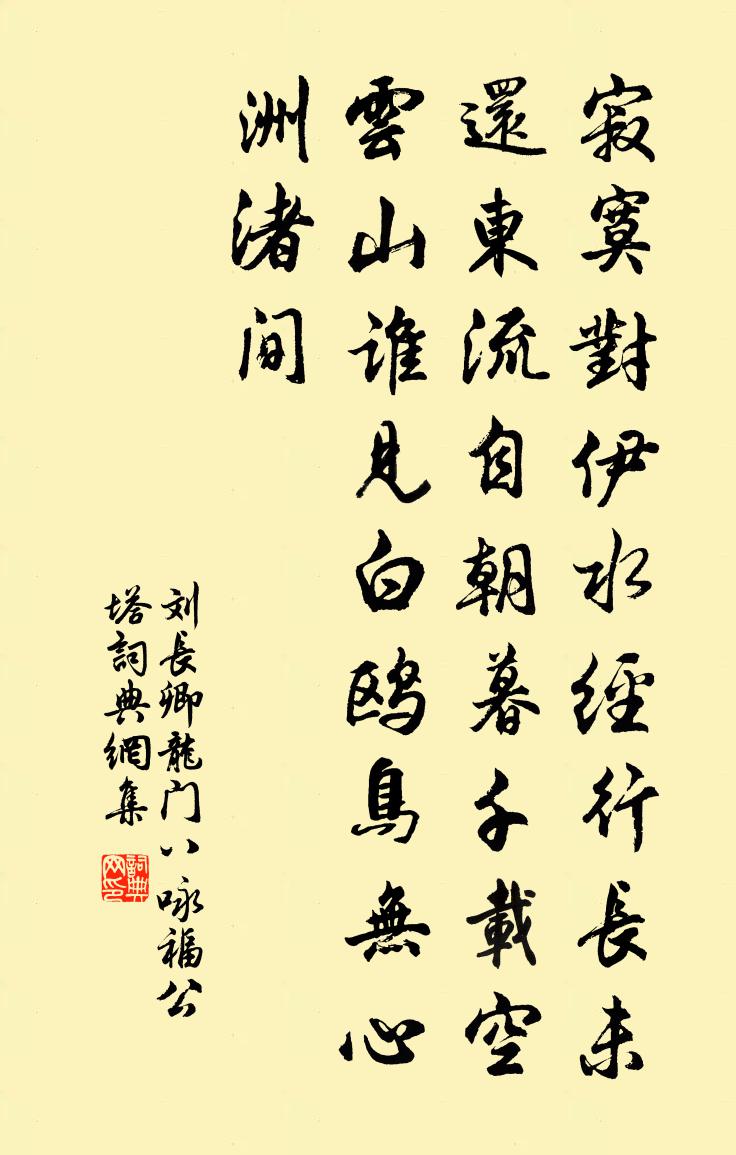 寂寞對伊水經行長未
還東流自朝暮千載空
雲山誰見白鷗鳥無心
洲渚间
刘長卿龍门八咏福公
塔詞典網集
詞典
网印